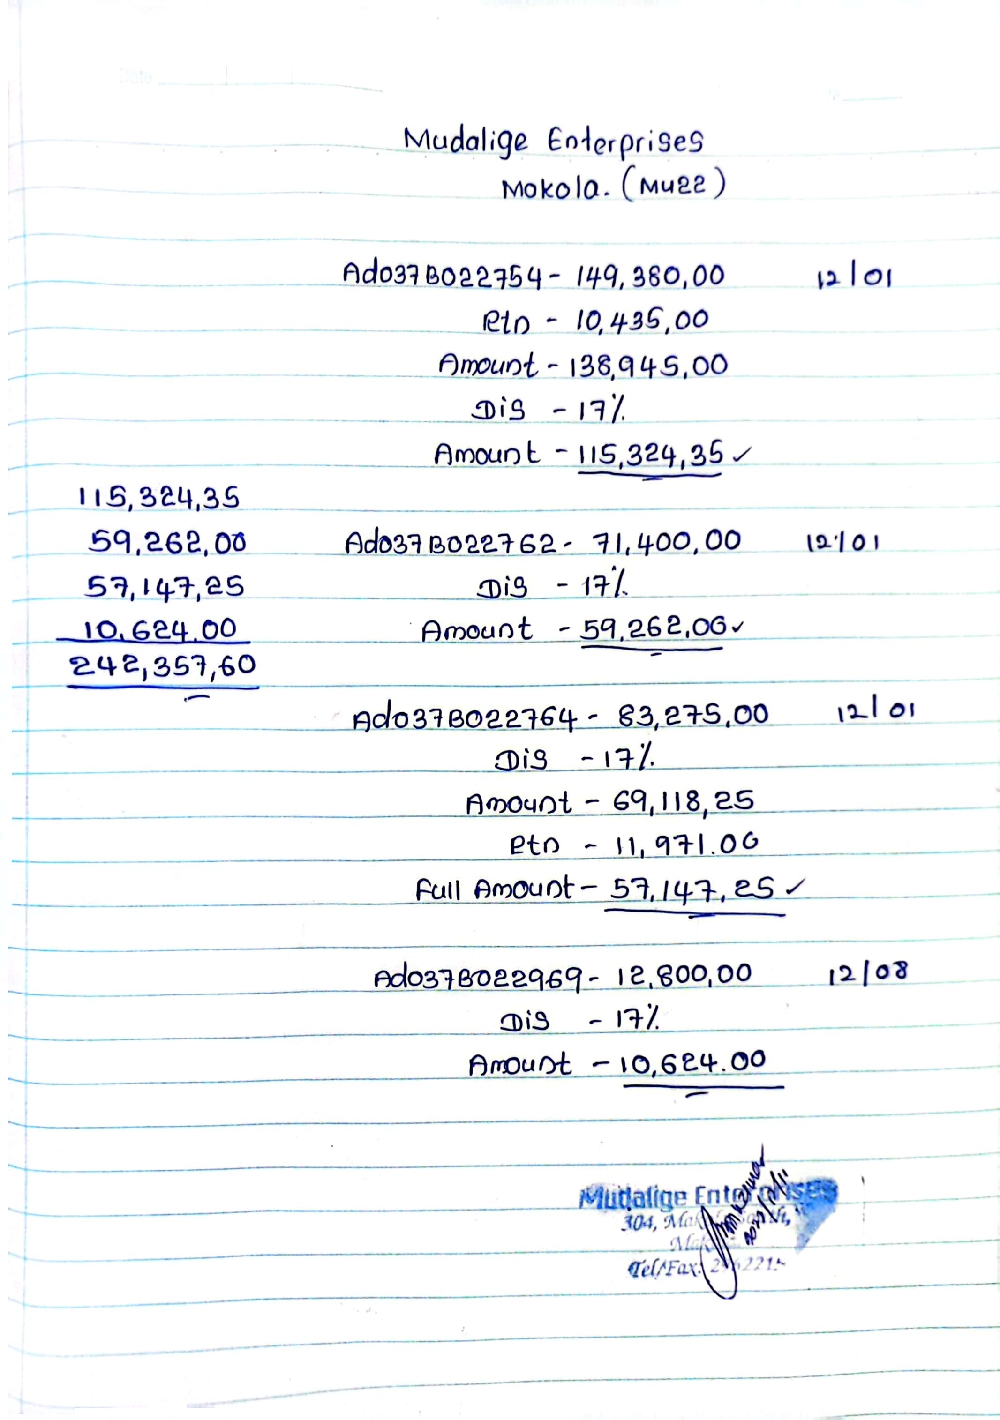 Date
Mudalige Enterprises
Mokola. (Mu22)
Ado37B022754 - 149,380,00 12/01
Rtn - 10,435,00
Amount - 138,945,00
Dis - 17%
Amount - 115,324,35 ✓
115,324,35
59,262,00 Ado37B022762 - 71,400,00 12/01
57,147,25 Dis - 17%
10,624.00 Amount - 59,262,00 ✓
242,357,60
Ado37B022764 - 83,275,00 12/01
Dis - 17%
Amount - 69,118,25
Rtn - 11,971.00
Full Amount - 57,147,25 ✓
Ado37B022969 - 12,800,00 12/08
Dis - 17%
Amount - 10,624.00
Mudalige Enterprises
304,
Tel/Fax: